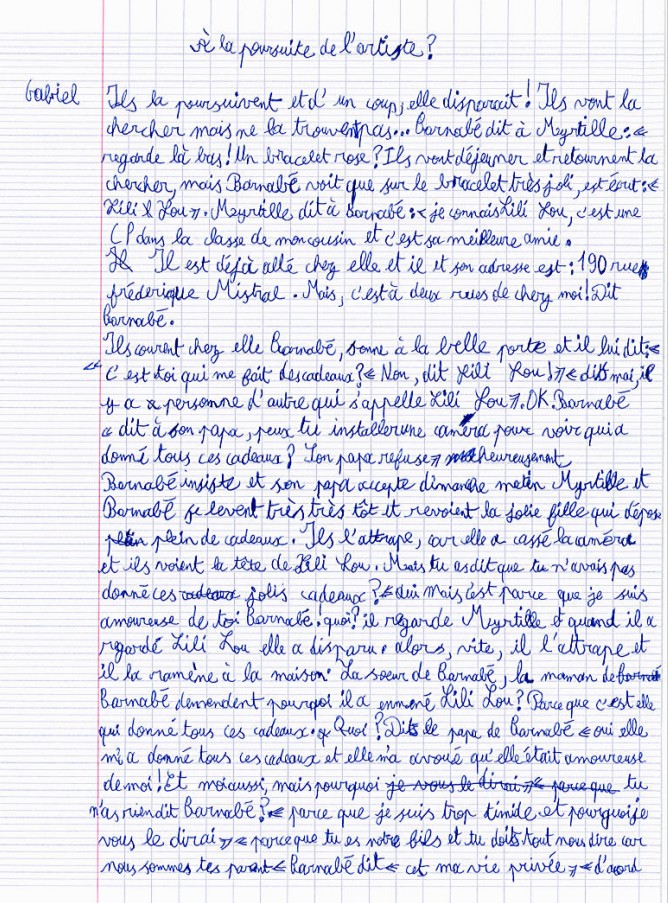 À la poursuite de l'artiste?
Gabriel Ils la poursuivent et d'un coup, elle disparait! Ils vont la
chercher mais ne la trouvent pas... Barnabé dit à Myrtille: «
regarde là bas! Un bracelet rose? Ils vont déjeuner et retournent la
chercher, mais Barnabé voit que sur le bracelet très joli, est écrit: «
Lili Lou ». Meyrtille dit à Barnabé: « je connais Lili Lou, c'est une
CP dans la classe de mon cousin et c'est sa meilleure amie.
Il est déjà allé chez elle et il et son adresse est: 190 rue
fréderique Mistral. Mais, c'est à deux rues de chez moi! Dit
Barnabé.
Ils courent chez elle Barnabé, sonne à la belle porte et il lui dit: «
C'est toi qui me fait des cadeaux? « Non, dit Lili Lou! » « dit moi, il
y a personne d'autre qui s'appelle Lili Lou ». OK. Barnabé
a dit à son papa, peux tu installer une caméra pour voir qui a
donné tous ces cadeaux? Son papa refuse » malheureusement
Barnabé insiste et son papa accepte dimanche matin Myrtille et
Barnabé se levent très très tôt et revoient la jolie fille qui dépose
plein de cadeaux. Ils l'attrape, car elle a cassé la caméra
et ils voient la tête de Lili Lou. Mais tu as dit que tu n'avais pas
donné ces jolis cadeaux? « oui mais c'est parce que je suis
amoureuse de toi Barnabé. quoi? il regarde Meyrtille et quand il a
regardé Lili Lou elle a disparu. alors, vite, il l'attrape et
il la ramène à la maison. La soeur de Barnabé, la maman de
Barnabé demendent pourqoi il a emmené Lili Lou? Parce que c'est elle
qui donné tous ces cadeaux. Quoi? Dit le papa de Barnabé « oui elle
m'a donné tous ces cadeaux et elle m'a avoué qu'elle était amoureuse
de moi! Et moi aussi, mais pourquoi je vous le dirai » « parce que tu
n'as rien dit Barnabé? « parce que je suis trop timide et pourquoi je
vous le dirai » « parce que tu es notre fils et tu doits tout nous dire car
nous sommes tes parent « Barnabé dit « cet ma vie privée » « d'acord